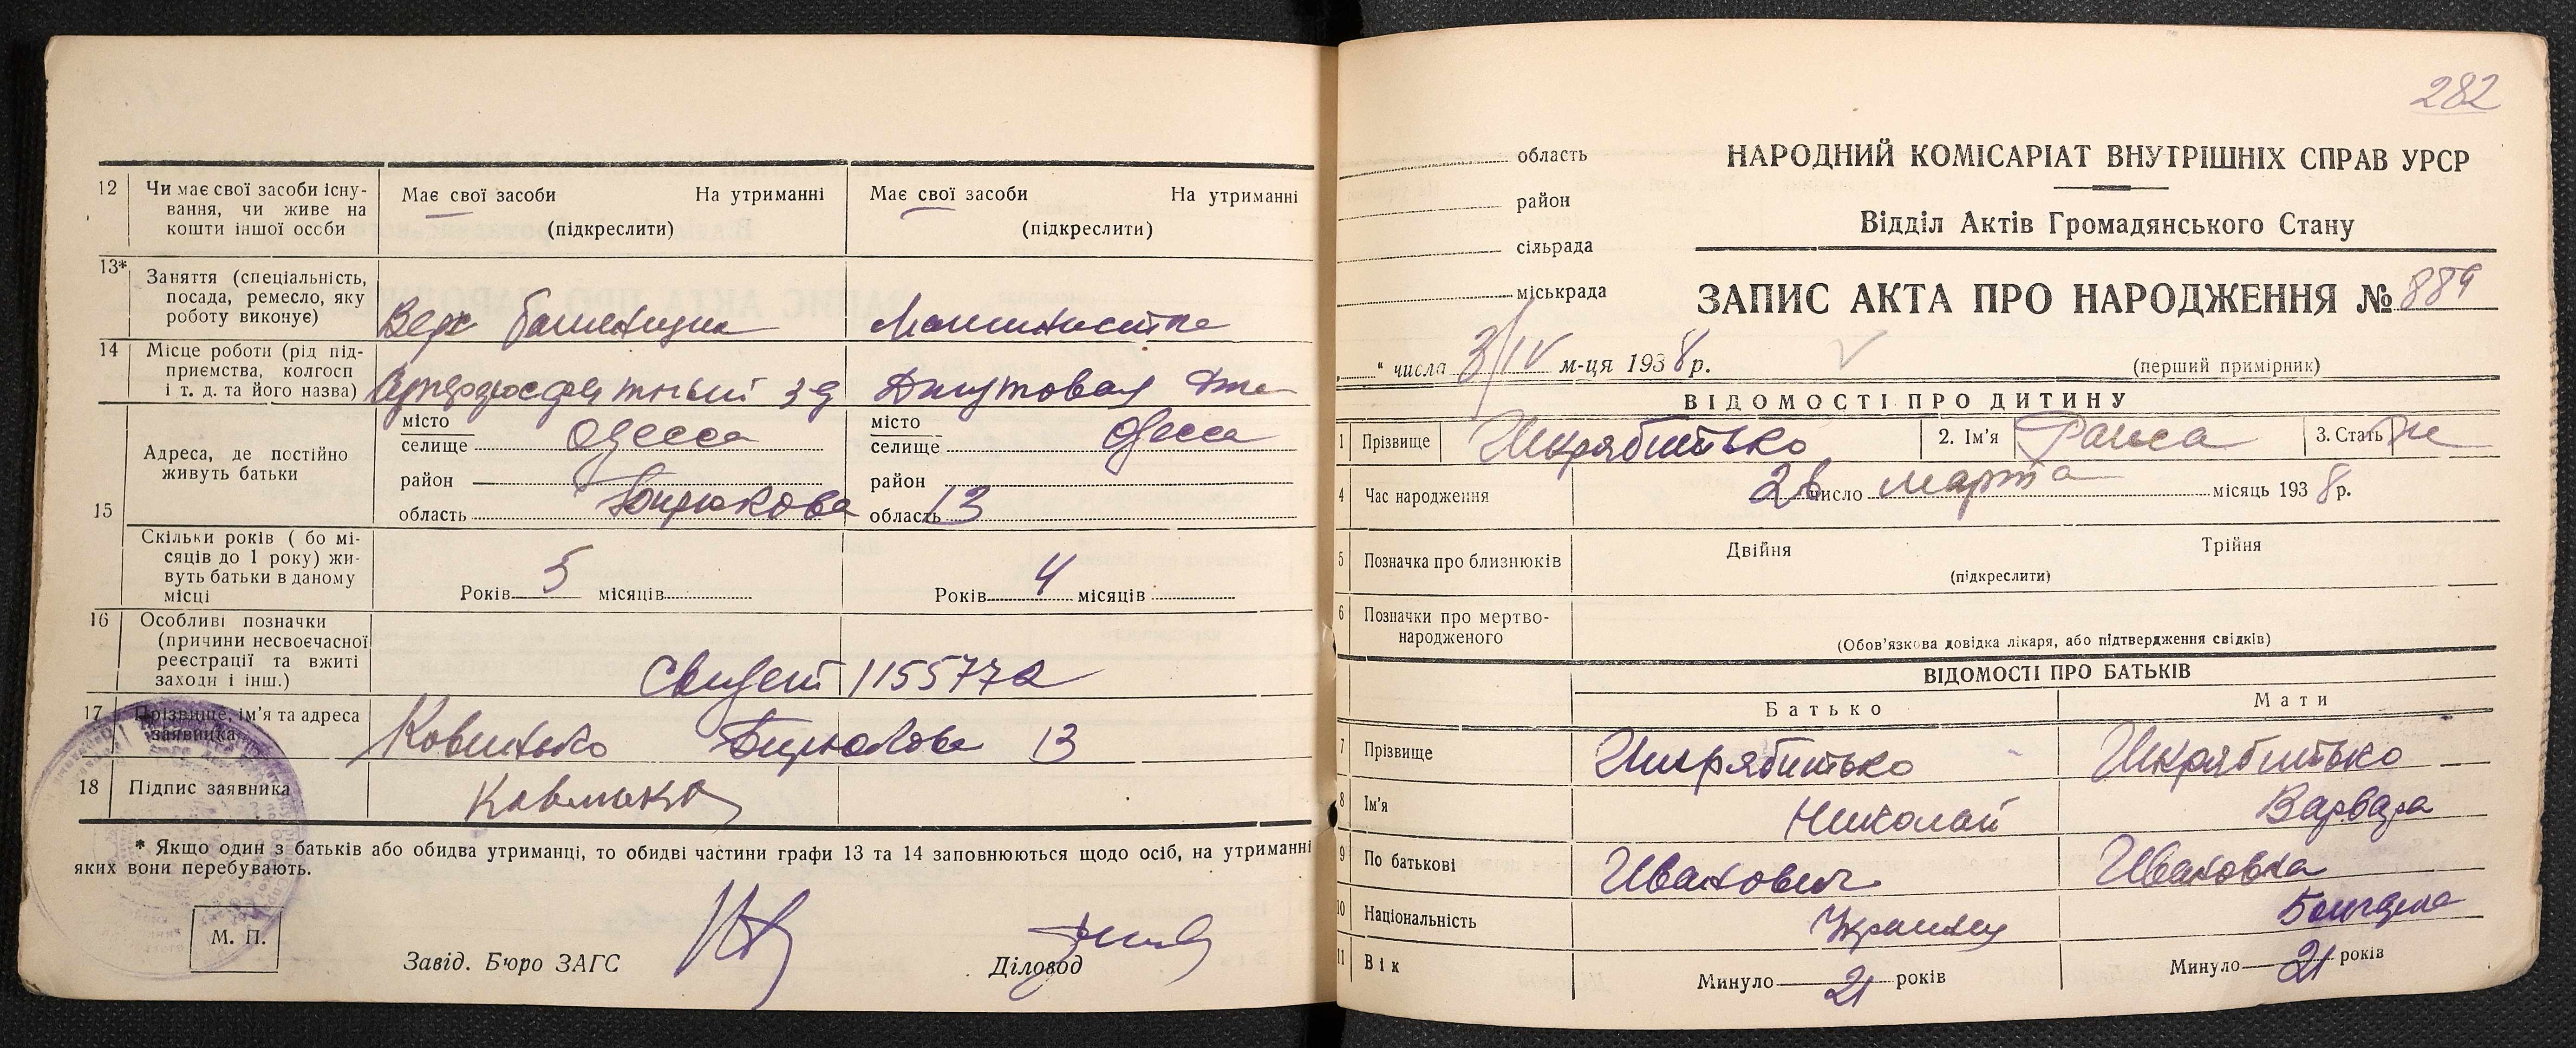 12 Чи має свої засоби існу-
вання, чи живе на
кошти іншої особи
Має свої засоби На утриманні
(підкреслити)
Має свої засоби На утриманні
(підкреслити)
13* Заняття (спеціальність,
посада, ремесло, яку
роботу виконує)
Верх
14 Місце роботи (рід під-
приємства, колгосп
і т. д. та його назва)
Джутовая
15 Адреса, де постійно
живуть батьки
місто
селище Одесса
район
область Бирюкова
місто
селище Одесса
район
область 13
Скільки років ( бо мі-
сяців до 1 року) жи-
вуть батьки в даному
місці
Років 5 місяців
Років 4 місяців
16 Особливі позначки
(причини несвоєчасної
реєстрації та вжиті
заходи і інш.)
Свидет 115577
17 Прізвище, ім'я та адреса
заявника
Ковинько Бирюкова 13
18 Підпис заявника
* Якщо один з батьків або обидва утриманці, то обидві частини графи 13 та 14 заповнюються щодо осіб, на утриманні
яких вони перебувають.
М. П.
Завід. Бюро ЗАГС
Діловод
282
область
район
сільрада
міськрада
НАРОДНИЙ КОМІСАРІАТ ВНУТРІШНІХ СПРАВ УРСР
Відділ Актів Громадянського Стану
ЗАПИС АКТА ПРО НАРОДЖЕННЯ № 889
„ “ числа 3/IV м-ця 1938 р.
(перший примірник)
ВІДОМОСТІ ПРО ДИТИНУ
1 Прізвище Шкрябитько 2. Ім'я Раиса 3. Стать ж
4 Час народження 26 число марта місяць 1938 р.
5 Позначка про близнюків Двійня Трійня
(підкреслити)
6 Позначки про мертво-
народженого
(Обов'язкова довідка лікаря, або підтвердження свідків)
ВІДОМОСТІ ПРО БАТЬКІВ
Батько Мати
7 Прізвище Шкрябитько Шкрябитько
8 Ім'я Николай Варвара
9 По батькові Иванович Ивановна
10 Національність Украинец
11 Вік Минуло 21 років Минуло 21 років